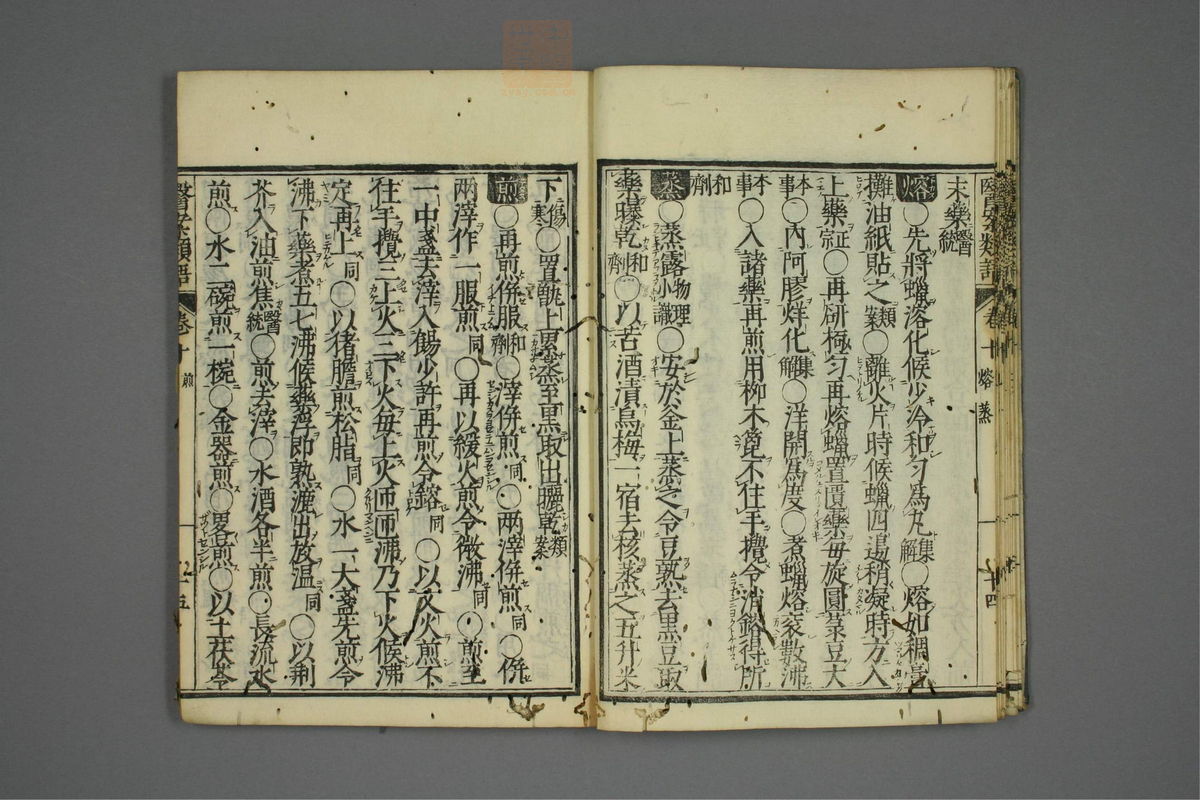 末藥醫統
熔○先將蠟溶化候少冷和勻爲丸集解○熔如稠膏
攤油紙貼之類案○離火片時候蠟四邊稍凝時方入
上藥証○再研極勻再熔蠟置慣藥毎旋圓菉豆大
本事○內阿膠烊化集解○洋開爲度○煮蠟熔數沸
本事○入諸藥再煎用柳木篦不住手攪令消鎔得所
和劑
蒸○蒸露物理小識○安於釜上蒸之令豆熟去黑豆取
藥曝乾和劑○以苦酒漬烏梅一宿去核蒸之五升米
下傷寒○置甑上累蒸至黑取出曬乾類案
煎○再煎併服和劑○滓併煎同○兩滓併煎同○併
兩滓作一服煎同○再以緩火煎令微沸同○煎至
一中盞去滓入餳少許再煎令鎔同○以文火煎不
住手攪三上火三下火毎上火匝匝沸乃下火候沸
定再上同○以猪膽煎松脂同○水一大盞先煎令
沸下藥煮五七沸候藥浮即熟漉出放温同○以荆
芥入油煎焦醫統○煎去滓○水酒各半煎○長流水
煎○水二碗煎一椀○金器煎○畧煎○以土茯苓
卷十
熔
蒸
十四
卷十
煎
十五